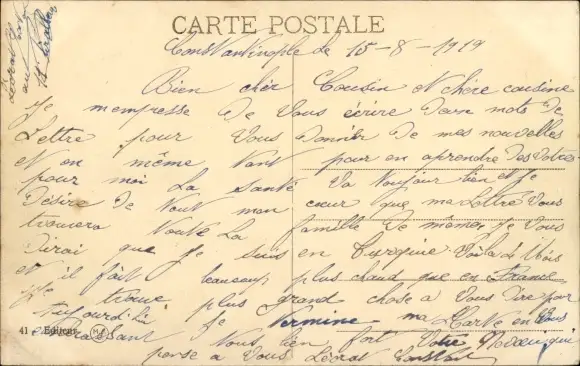 CARTE POSTALE
Constantinople le 15-8-1919
Bien chèr Cousin et chère cousine
Je mempresse de Vous écrire deux mots de
Lettre pour Vous donnér de mes nouvelles
et en même tant pour en aprendre des Votres
pour moi La santé Va toujour bien et je
désire de tout mon cœur que ma Lettre Vous
trouvera toute La famille de même, Je Vous
dirai que je suis en turquie Voila
et il fait beaucoup plus chaud que en France
Je trouve plus grand chose a Vous dire por
aujourd'hui Je termine ma Carte en Vous
Nous bien fort Votre qui
pense a Vous Léorat Constant
41 - Editeur
Léorat